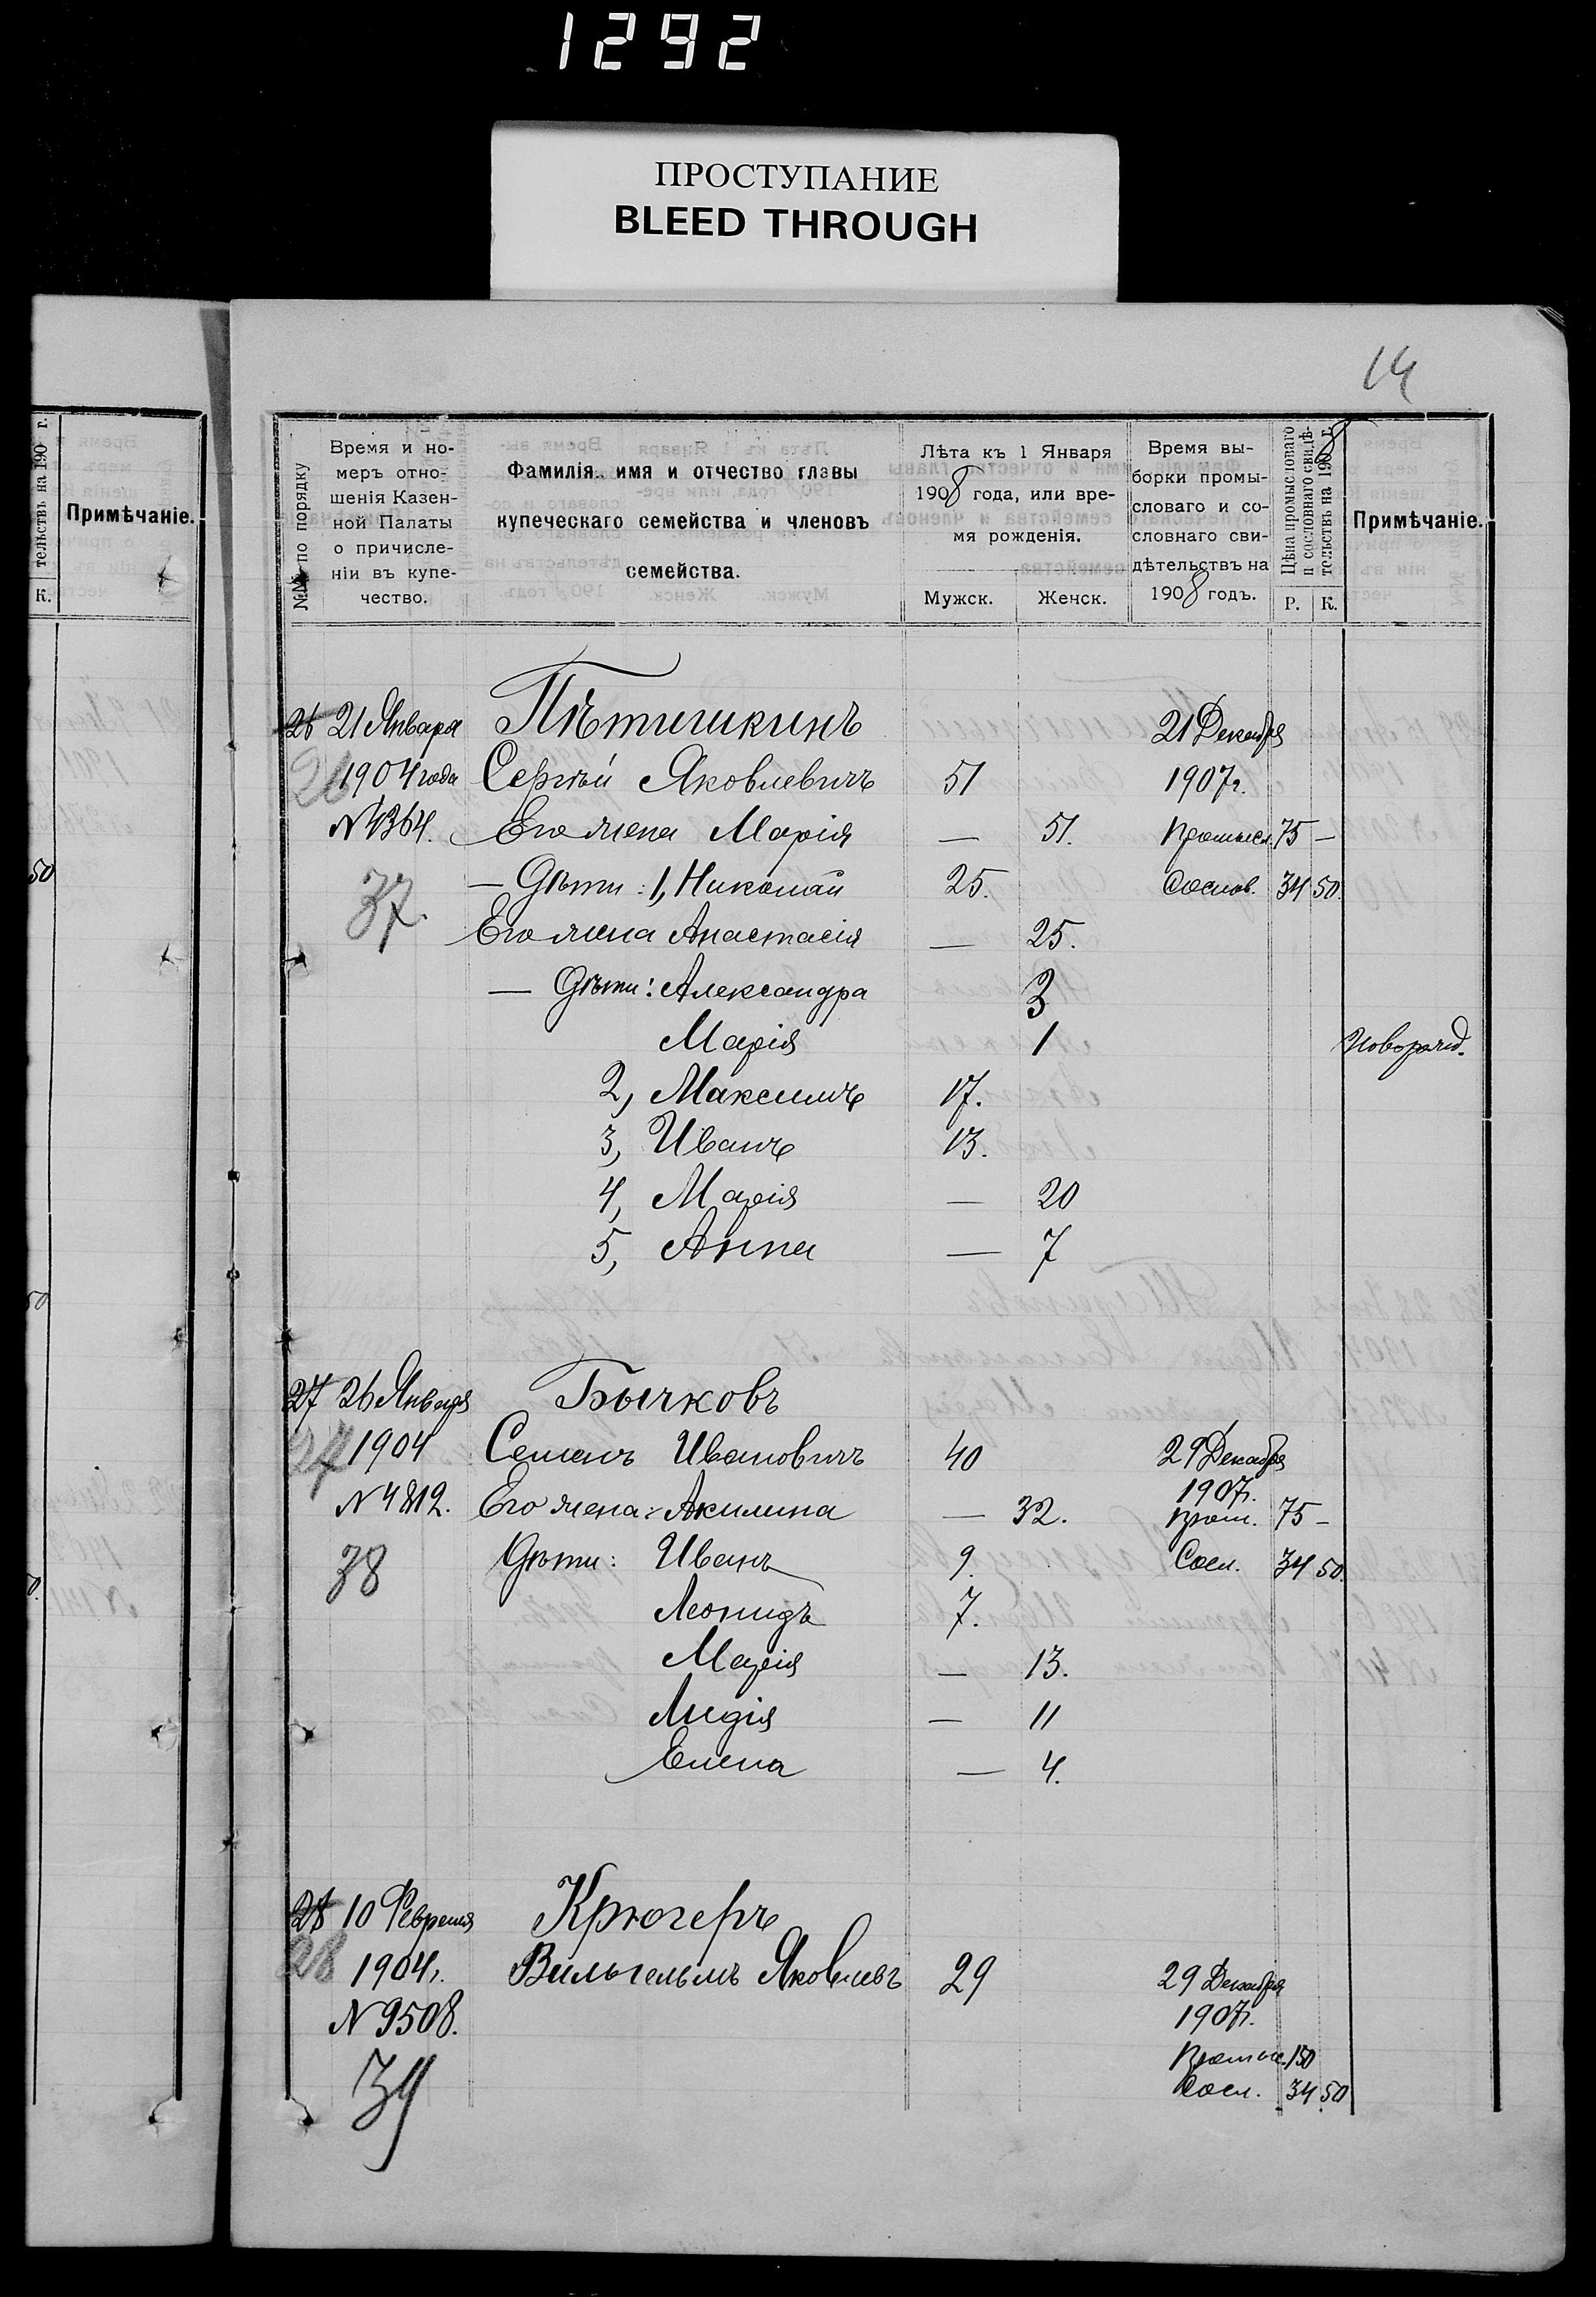 1292
ПРОСТУПАНИЕ
BLEED THROUGH
14
тельствъ на 190 г.
К.
Примѣчаніе.
50
50
№№ по порядку
Время и но-
меръ отно-
шенія Казен-
ной Палаты
о причисле-
ніи въ купе-
чество.
Фамилія, имя и отчество главы
купеческаго семейства и членовъ
семейства.
Лѣта къ 1 Января
1908 года, или вре-
мя рожденія.
Мужск. Женск.
Время вы-
борки промы-
словаго и со-
словнаго сви-
дѣтельствъ на
1908 годъ.
Цѣна промысловаго
и сословнаго свидѣ-
тельствъ на 1908 г.
Р. К.
Примѣчаніе.
26 21 Января Пѣтишкинъ 21 Декабря
26 1904 года Сергѣй Яковлевичъ 51 1907 г.
N 4364. Его жена Марія — 51. Промысл. 75 —
37. — Дѣти: 1, Николай 25. Сослов. 34 50.
Его жена Анастасія — 25.
— Дѣти: Александра 3
Марія 1 Новорожд.
2, Максимъ 17.
3, Иванъ 13.
4, Марія — 20
5, Анна — 7
27 26 Января Бычковъ
27 1904 Семенъ Ивановичъ 40 29 Декабря
1907 г.
N 4812. Его жена: Акилина — 32. Пром. 75 —
38 Дѣти: Иванъ 9. Сосл. 34 50.
Леонидъ 7.
Марія — 13.
Лидія — 11
Елена — 4.
28 10 Февраля Крюгеръ
28 1904 г. Вильгельмъ Яковлевъ 29 29 Декабря
N 9508. 1907 г.
39 Промысл. 150
Сосл. 34 50